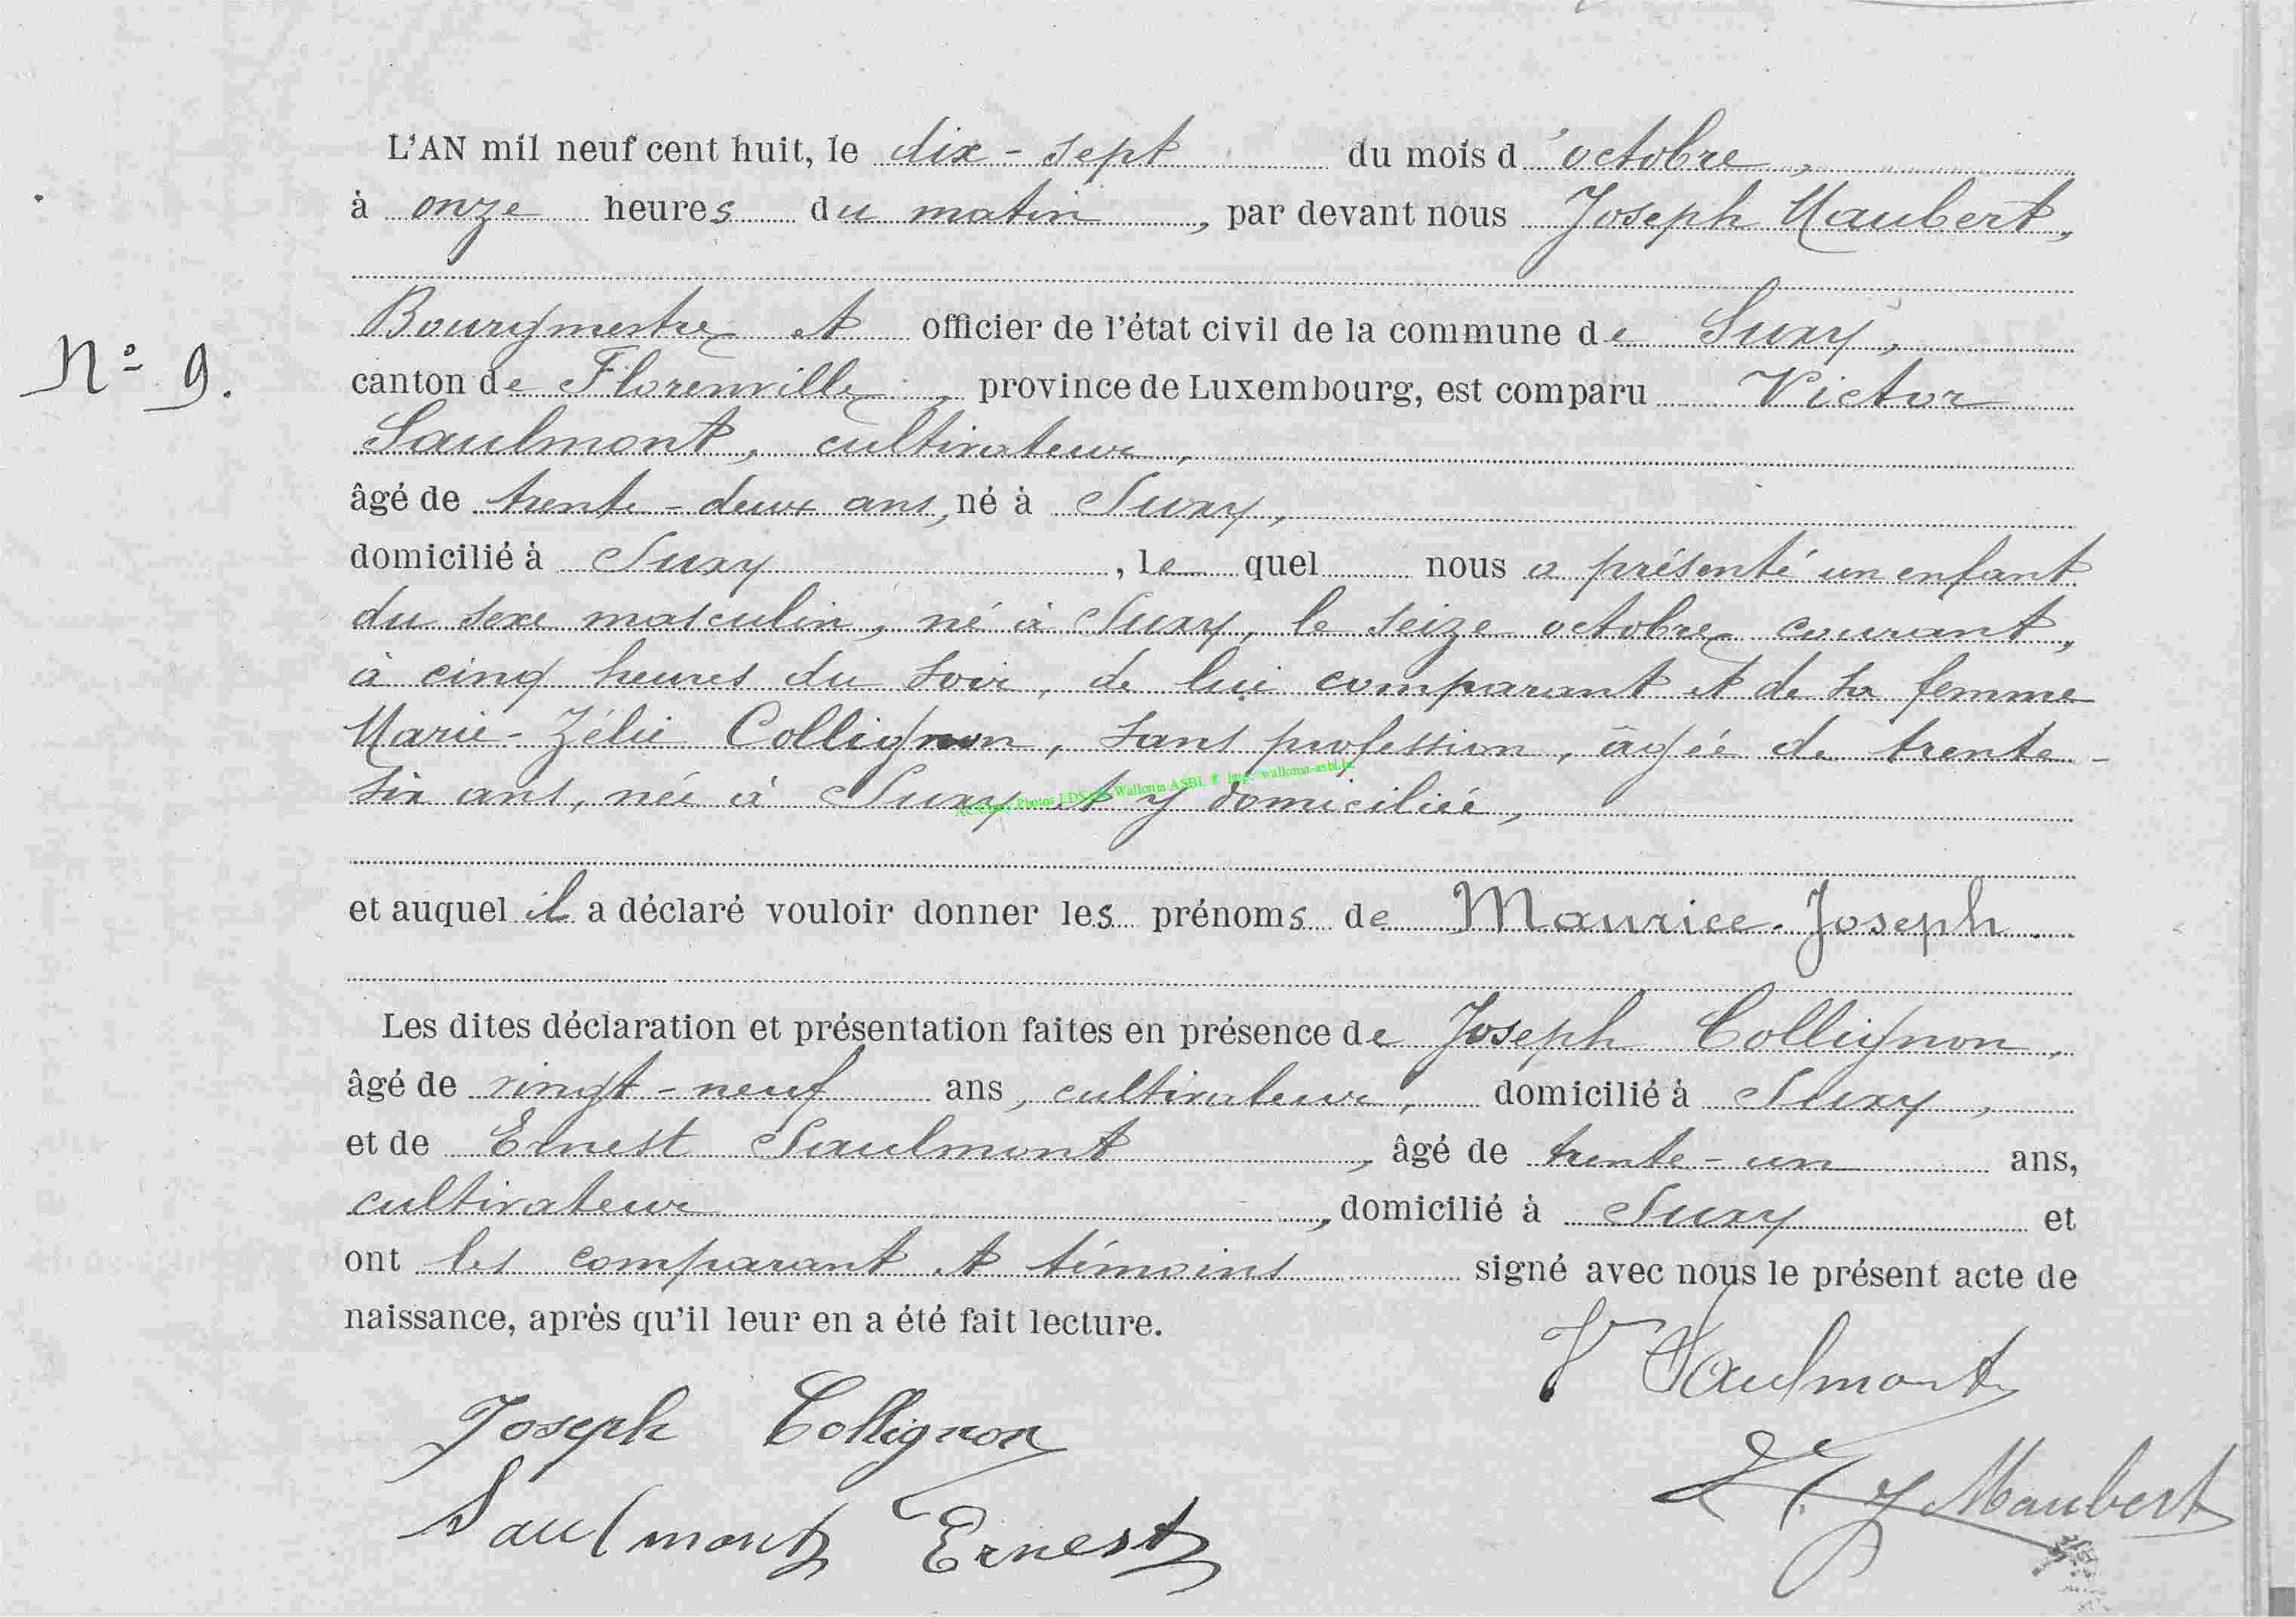 L'AN mil neuf cent huit, le dix-sept du mois d'octobre,
à onze heures du matin, par devant nous Joseph Maubert,
Bourgmestre et officier de l'état civil de la commune de Suxy,
N° 9.
canton de Florenville, province de Luxembourg, est comparu Victor
Saulmont, cultivateur,
âgé de trente-deux ans, né à Suxy,
domicilié à Suxy, le quel nous a présenté un enfant
du sexe masculin, né à Suxy, le seize octobre courant,
à cinq heures du soir, de lui comparant et de sa femme
Marie-Zélie Collignon, sans profession, âgée de trente-
six ans, née à Suxy et y domiciliée,
et auquel il a déclaré vouloir donner les prénoms de Maurice-Joseph.
Les dites déclaration et présentation faites en présence de Joseph Collignon,
âgé de vingt-neuf ans, cultivateur, domicilié à Suxy,
et de Ernest Saulmont, âgé de trente-un ans,
cultivateur, domicilié à Suxy et
ont les comparant et témoins signé avec nous le présent acte de
naissance, après qu'il leur en a été fait lecture.
V Saulmont
Joseph Collignon
J Maubert
Saulmont Ernest